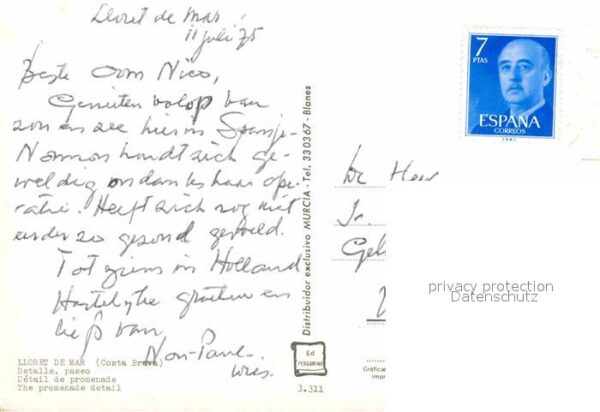 Lloret de Mar
11 juli 75
Beste Oom Nico,
Genieten volop van
zon en zee hier in Spanje.
houdt zich ge-
weldig ondanks haar ope-
ratie. Heeft zich nog niet
eerder zo gezond gevoeld.
Tot ziens in Holland
Hartelijke groeten en
liefs van
LLORET DE MAR (Costa Brava)
Detalle, paseo
Détail de promenade
The promenade detail
Distribuidor exclusivo MURCIA-Tel. 330367-Blanes
Ed
PERGAMINO
3.311
7
PTAS
ESPAÑA
CORREOS
De Heer
Gel
privacy protection
Datenschutz